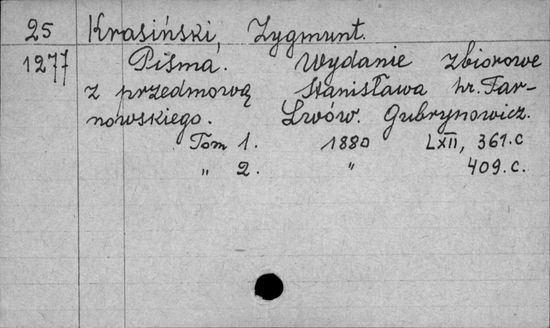 25 Krasiński, Zygmunt.
1277 Pisma. Wydanie zbiorowe
z przedmową Stanisława hr. Tar-
nowskiego. Lwów. Gubrynowicz.
Tom 1. 1880 LXII, 361.c
„ 2. „ 409.c.